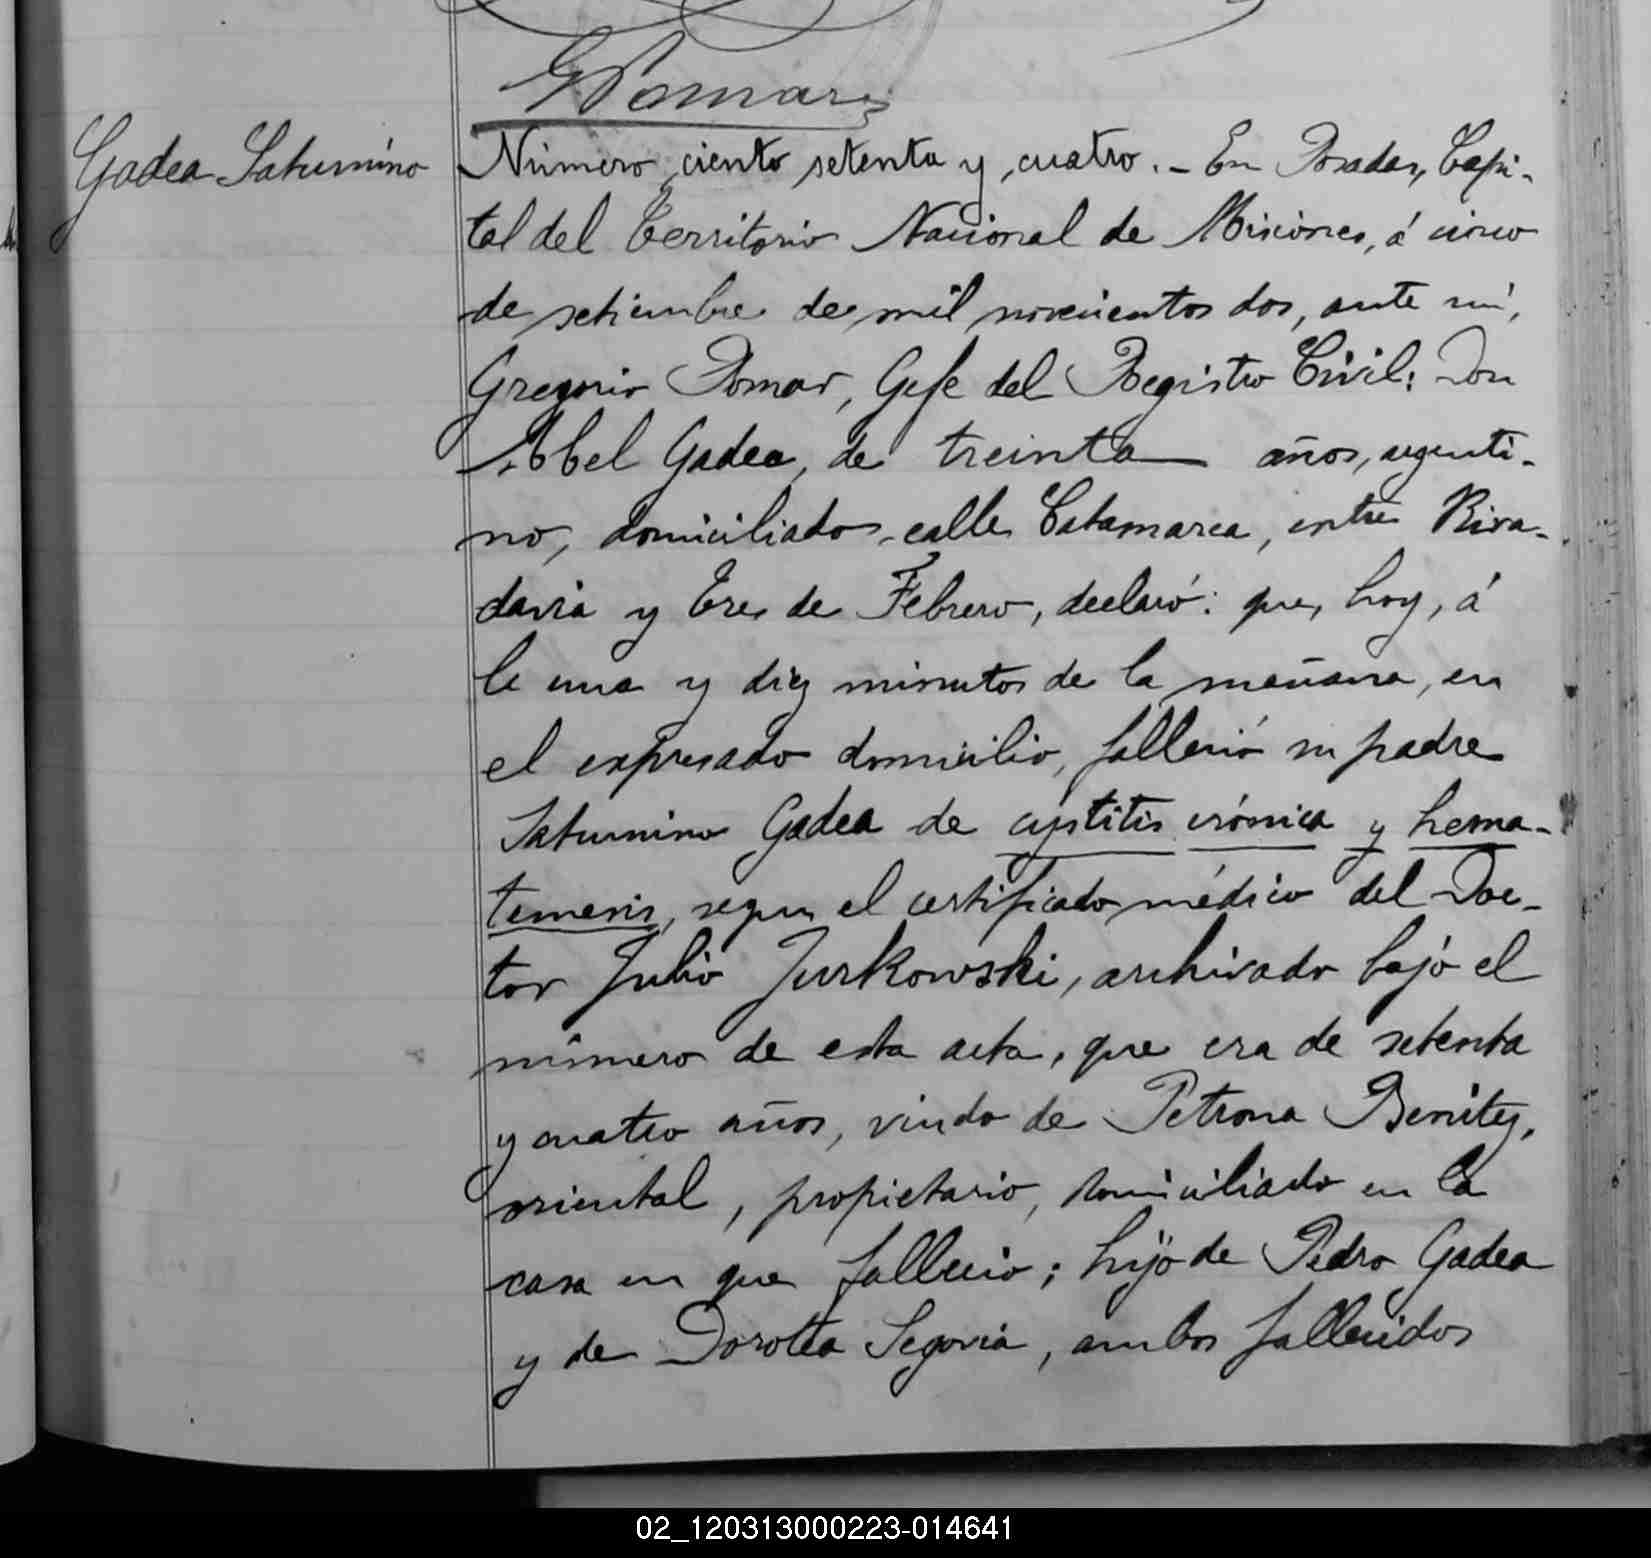 GPomar
Gadea Saturnino
Número ciento setenta y cuatro.- En Posadas, Capi-
tal del Territorio Nacional de Misiones, á cinco
de setiembre de mil novecientos dos, ante mí,
Gregorio Pomar, Gefe del Registro Civil: Don
Abel Gadea, de treinta años, argenti-
no, domiciliado calle Catamarca, entre Riva-
davia y Tres de Febrero, declaró: que, hoy, á
la una y diez minutos de la mañana, en
el expresado domicilio, falleció su padre
Saturnino Gadea de cystitis crónica y hema-
temesis, segun el certificado médico del Doc-
tor Julio Jurkowski, archivado bajo el
número de esta acta, que era de setenta
y cuatro años, viudo de Petrona Benitez,
oriental, propietario, domiciliado en la
casa en que falleció; hijo de Pedro Gadea
y de Dorotea Segovia, ambos fallecidos
02_120313000223-014641